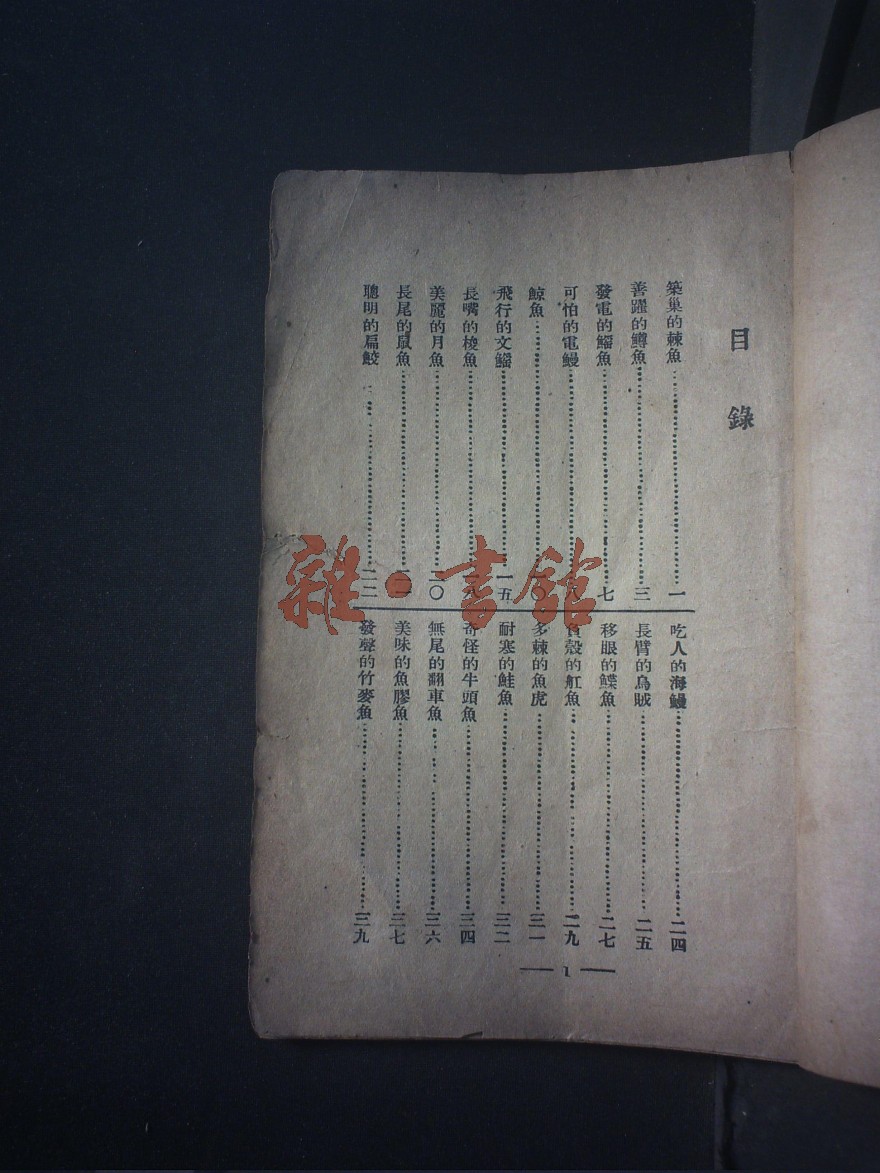 目錄
築巢的棘魚……一
善躍的鱒魚……三
發電的鯔魚……七
可怕的電鰻……八
鯨魚……一〇
飛行的文鰩……一五
長嘴的梭魚……一八
美麗的月魚……二〇
長尾的鼠魚……二一
聰明的扁鮫……二二
吃人的海鰻……二四
長臂的烏賊……二五
移眼的鰈魚……二七
負殼的魟魚……二九
多棘的魚虎……三一
耐寒的鮭魚……三二
奇怪的牛頭魚……三四
無尾的翻車魚……三六
美味的魚膠魚……三七
發聲的竹麥魚……三九
— 1 —
雜·書館